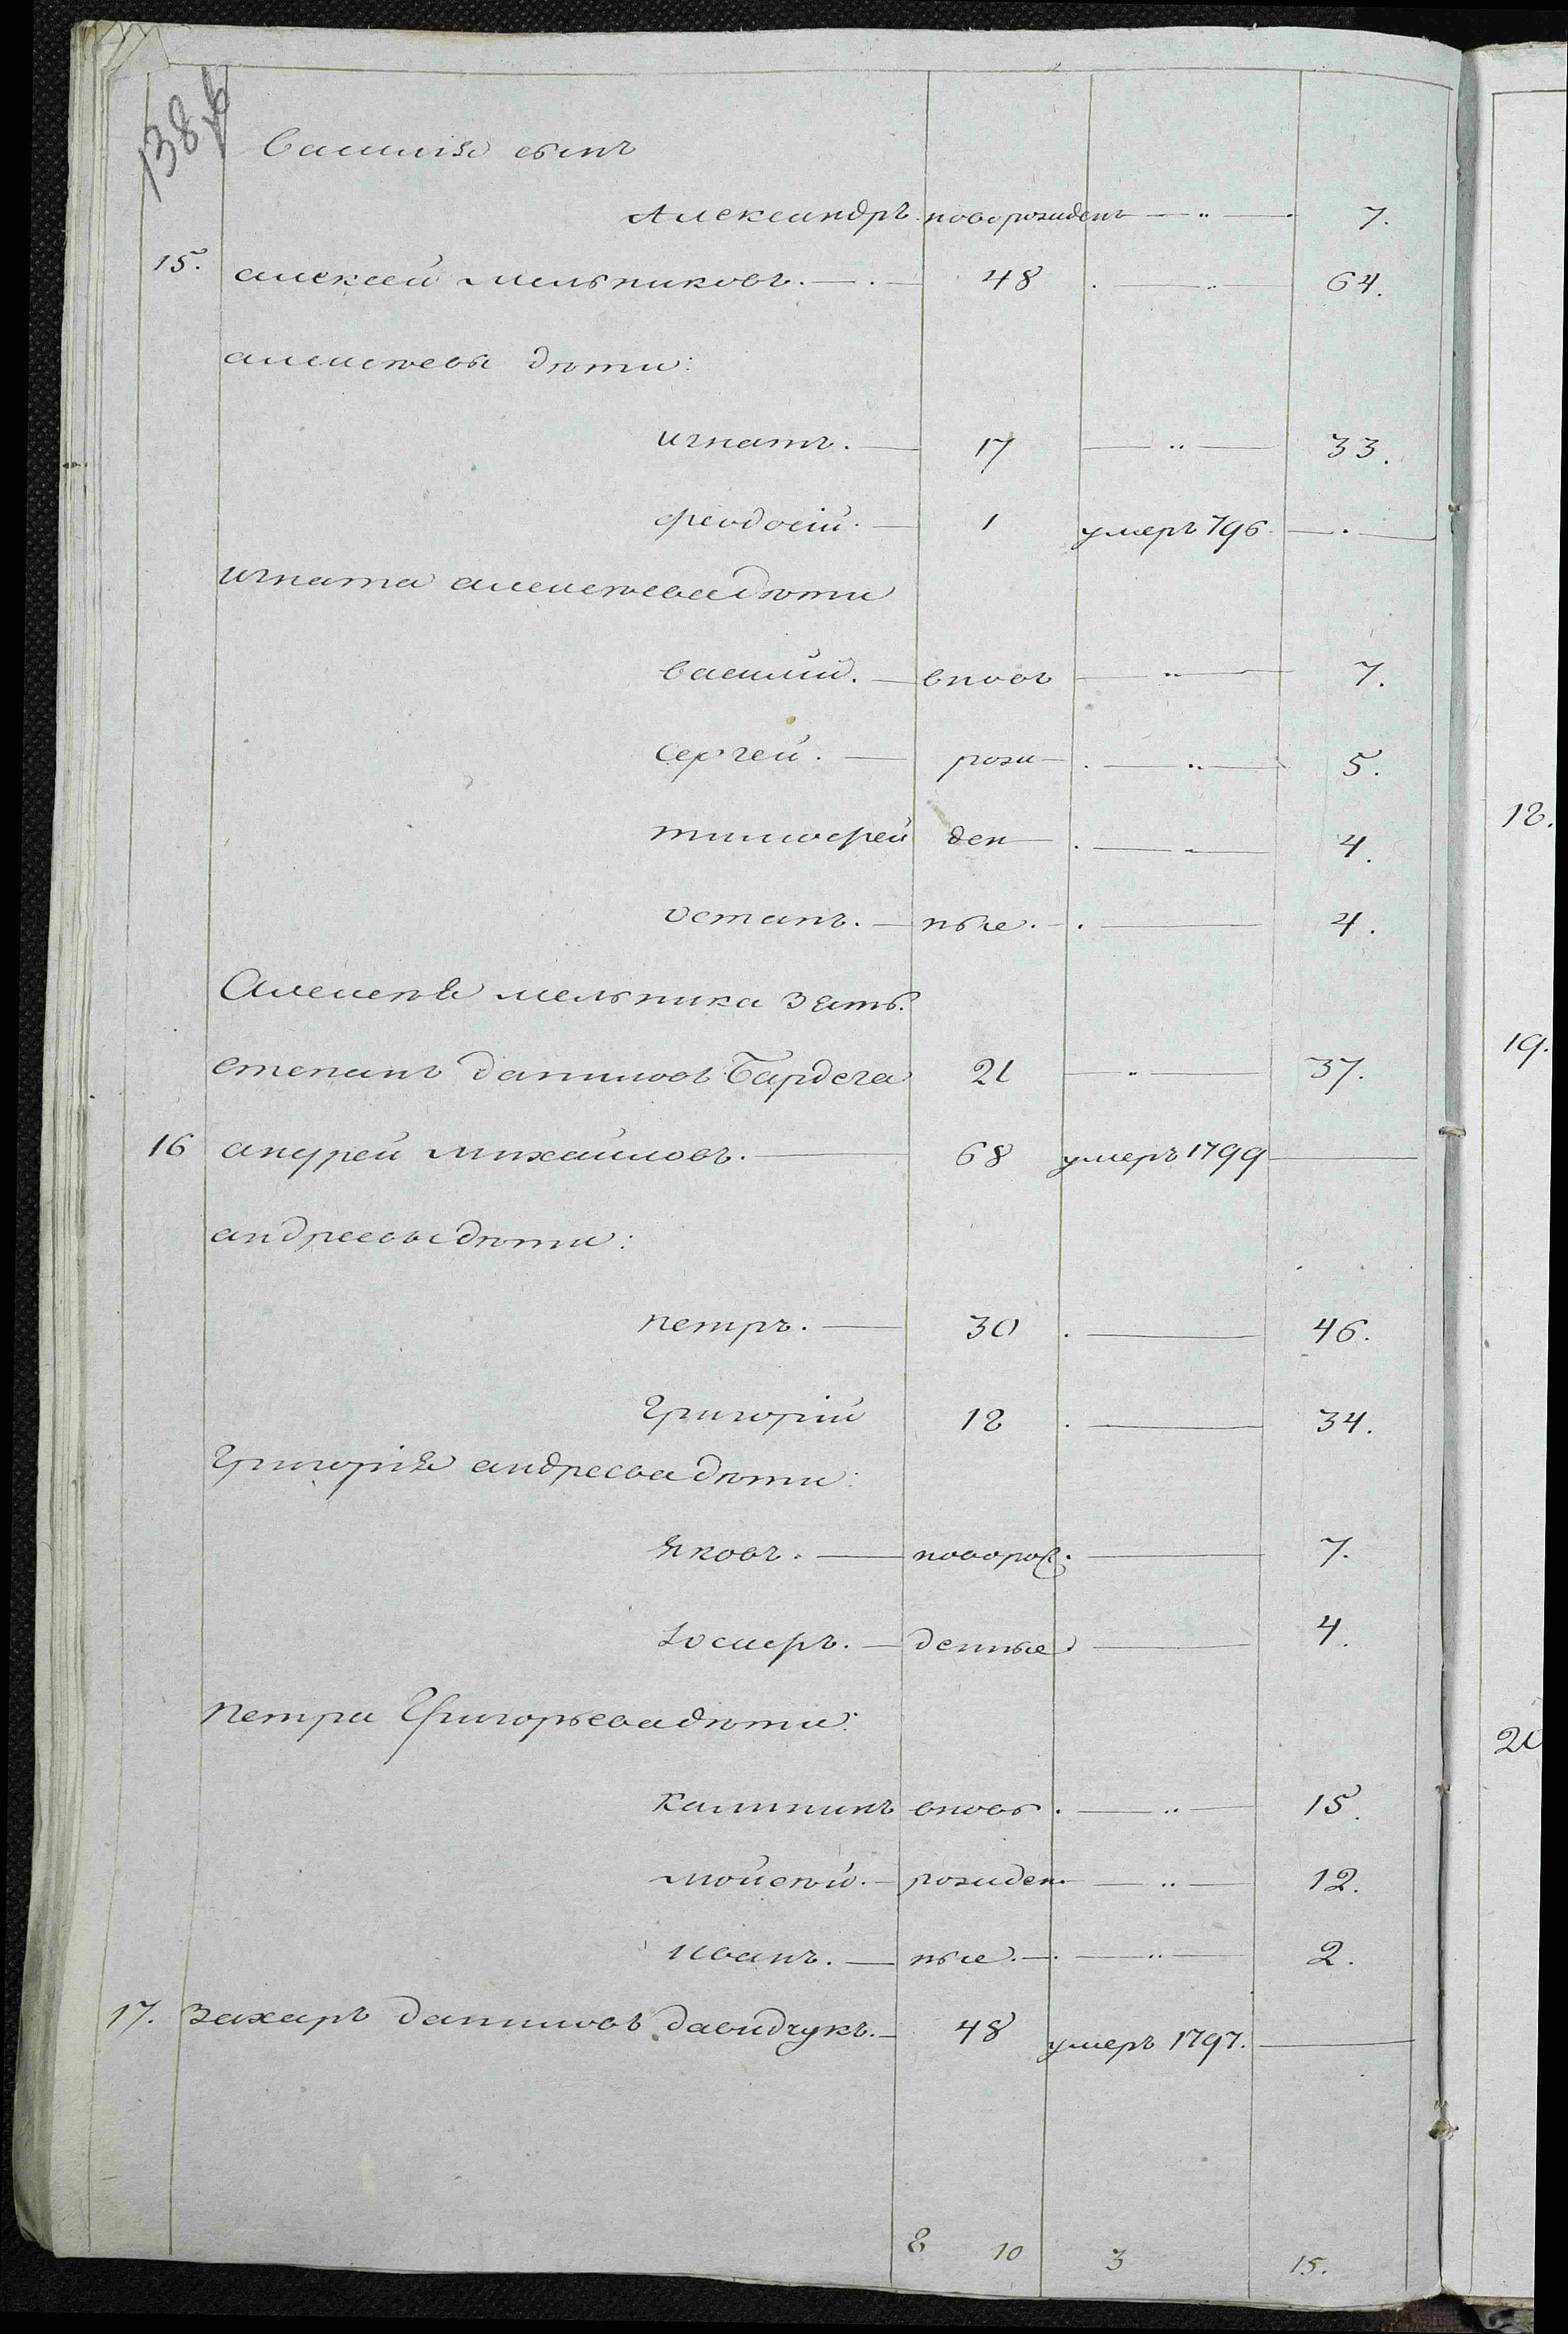 138 об
Василія сынъ
Александръ. новорожденъ — " — 7.
15. алексей Мельниковъ. — . — 48 . — " — 64.
алексѣевы дѣти:
игнатъ. — 17 — " — 33.
феодосій. — 1 умеръ 796. — . —
игната алексѣева дѣти
василій. — вновь — " — 7.
сергей. — рож— . — " — 5.
тимофей ден— . — " — 4.
остапъ. — ные. — . — 4.
Алексѣя мельника зять.
степанъ данилов Бардега 21 — " — 37.
16 андрей михайловъ. — 68 умеръ 1799 —
андреевы дѣти:
петръ. — 30 . — 46.
Григорій 18 . — 34.
Григорія андреева дѣти:
яковъ. — новорож. — 7.
— денные — 4.
петра Григорьева дѣти:
вновь . — " — 15.
мойсѣй. — рожден. — " — 12.
иванъ. — ные. — . — " — 2.
17. Захаръ даниловъ давидчукъ. — 48 умеръ 1797. —
8 10 3 15.
18.
19.
20